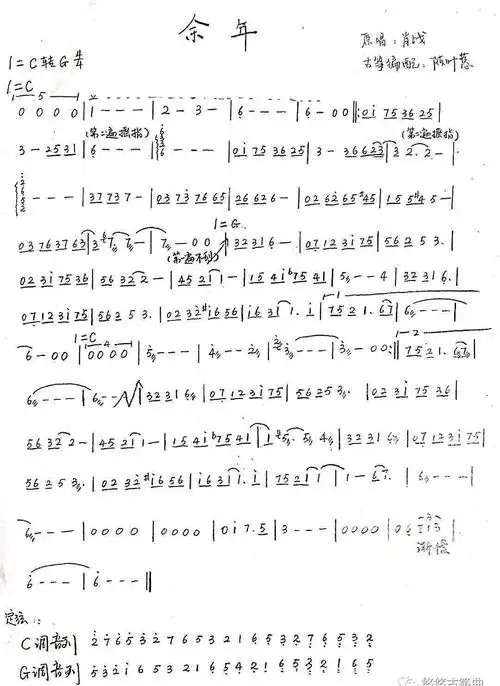 余年
1=C转G 4/4
原唱:肖战
古筝编配:陈叶蕙
1=C
1—5—1
0 0 0 0 | 1 - - - | 2 - 3 - | 6 - - - | 6 - 0 0 ‖: 0 i 75 36 25 |
(第二遍摇指)
(第二遍摇指)
3 - 25 31 | 6 - - - | - - - | 0 i 75 36 25 | 3 - 36 623 | 3 2. 2 - |
- - - | 37 73 7 - | 03 73 76 65 | 26 62 6 - | 02 62 65 #45 | 15 5 #4 5 - |
1=G
03 76 37 63 | 7 - - | 7 - 0 0 | 32 31 6 - | 07 12 3i 75 | 56 2 5 3. |
(第一遍不到)
02 3i 75 36 | 56 32 2 - | 45 21 1 - | 15 4i b75 41 | 5 - - 4 | 32 31 6. |
07 12 3i 75 | 56 2 5 3. | 02 32 #i6 56 | i6 31 1. i | 75 21. 67 | 6 - - - |
1=C
6 - 0 0 | 0 0 0 0 | 5 - - - | 4 - - 2 | 3 - - - | 3 - 0 0 :‖ 75 21. 67 |
6 - - - | 6 - | 32 31 6 | 07 12 3i 75 | 56 25 3. | 02 3i 75 36 |
56 32 2 - | 45 21 1 - | 15 4i b75 41 | 1 5. 5 4 | 32 31 6 | 07 12 3i 75 |
56 2 5 3. | 02 32 #i6 56 | i6 31 1. i | 75 21 1 | 1 - 67. | 6 - - - |
6 - - - | 0 0 0 0 | 0 0 0 0 | 0 i 7. 5 | 3 - - - | 0 0 0 0 |
渐慢
6 - - - | 6 - - - ‖
定弦:
C调音列 2 7 6 5 3 2 7 6 5 3 2 1 6 5 3 2 7 6 5 3 2
G调音列 5 3 2 1 6 5 3 2 1 6 5 4 2 1 6 5 3 2 1 6 5
悠悠古筝曲